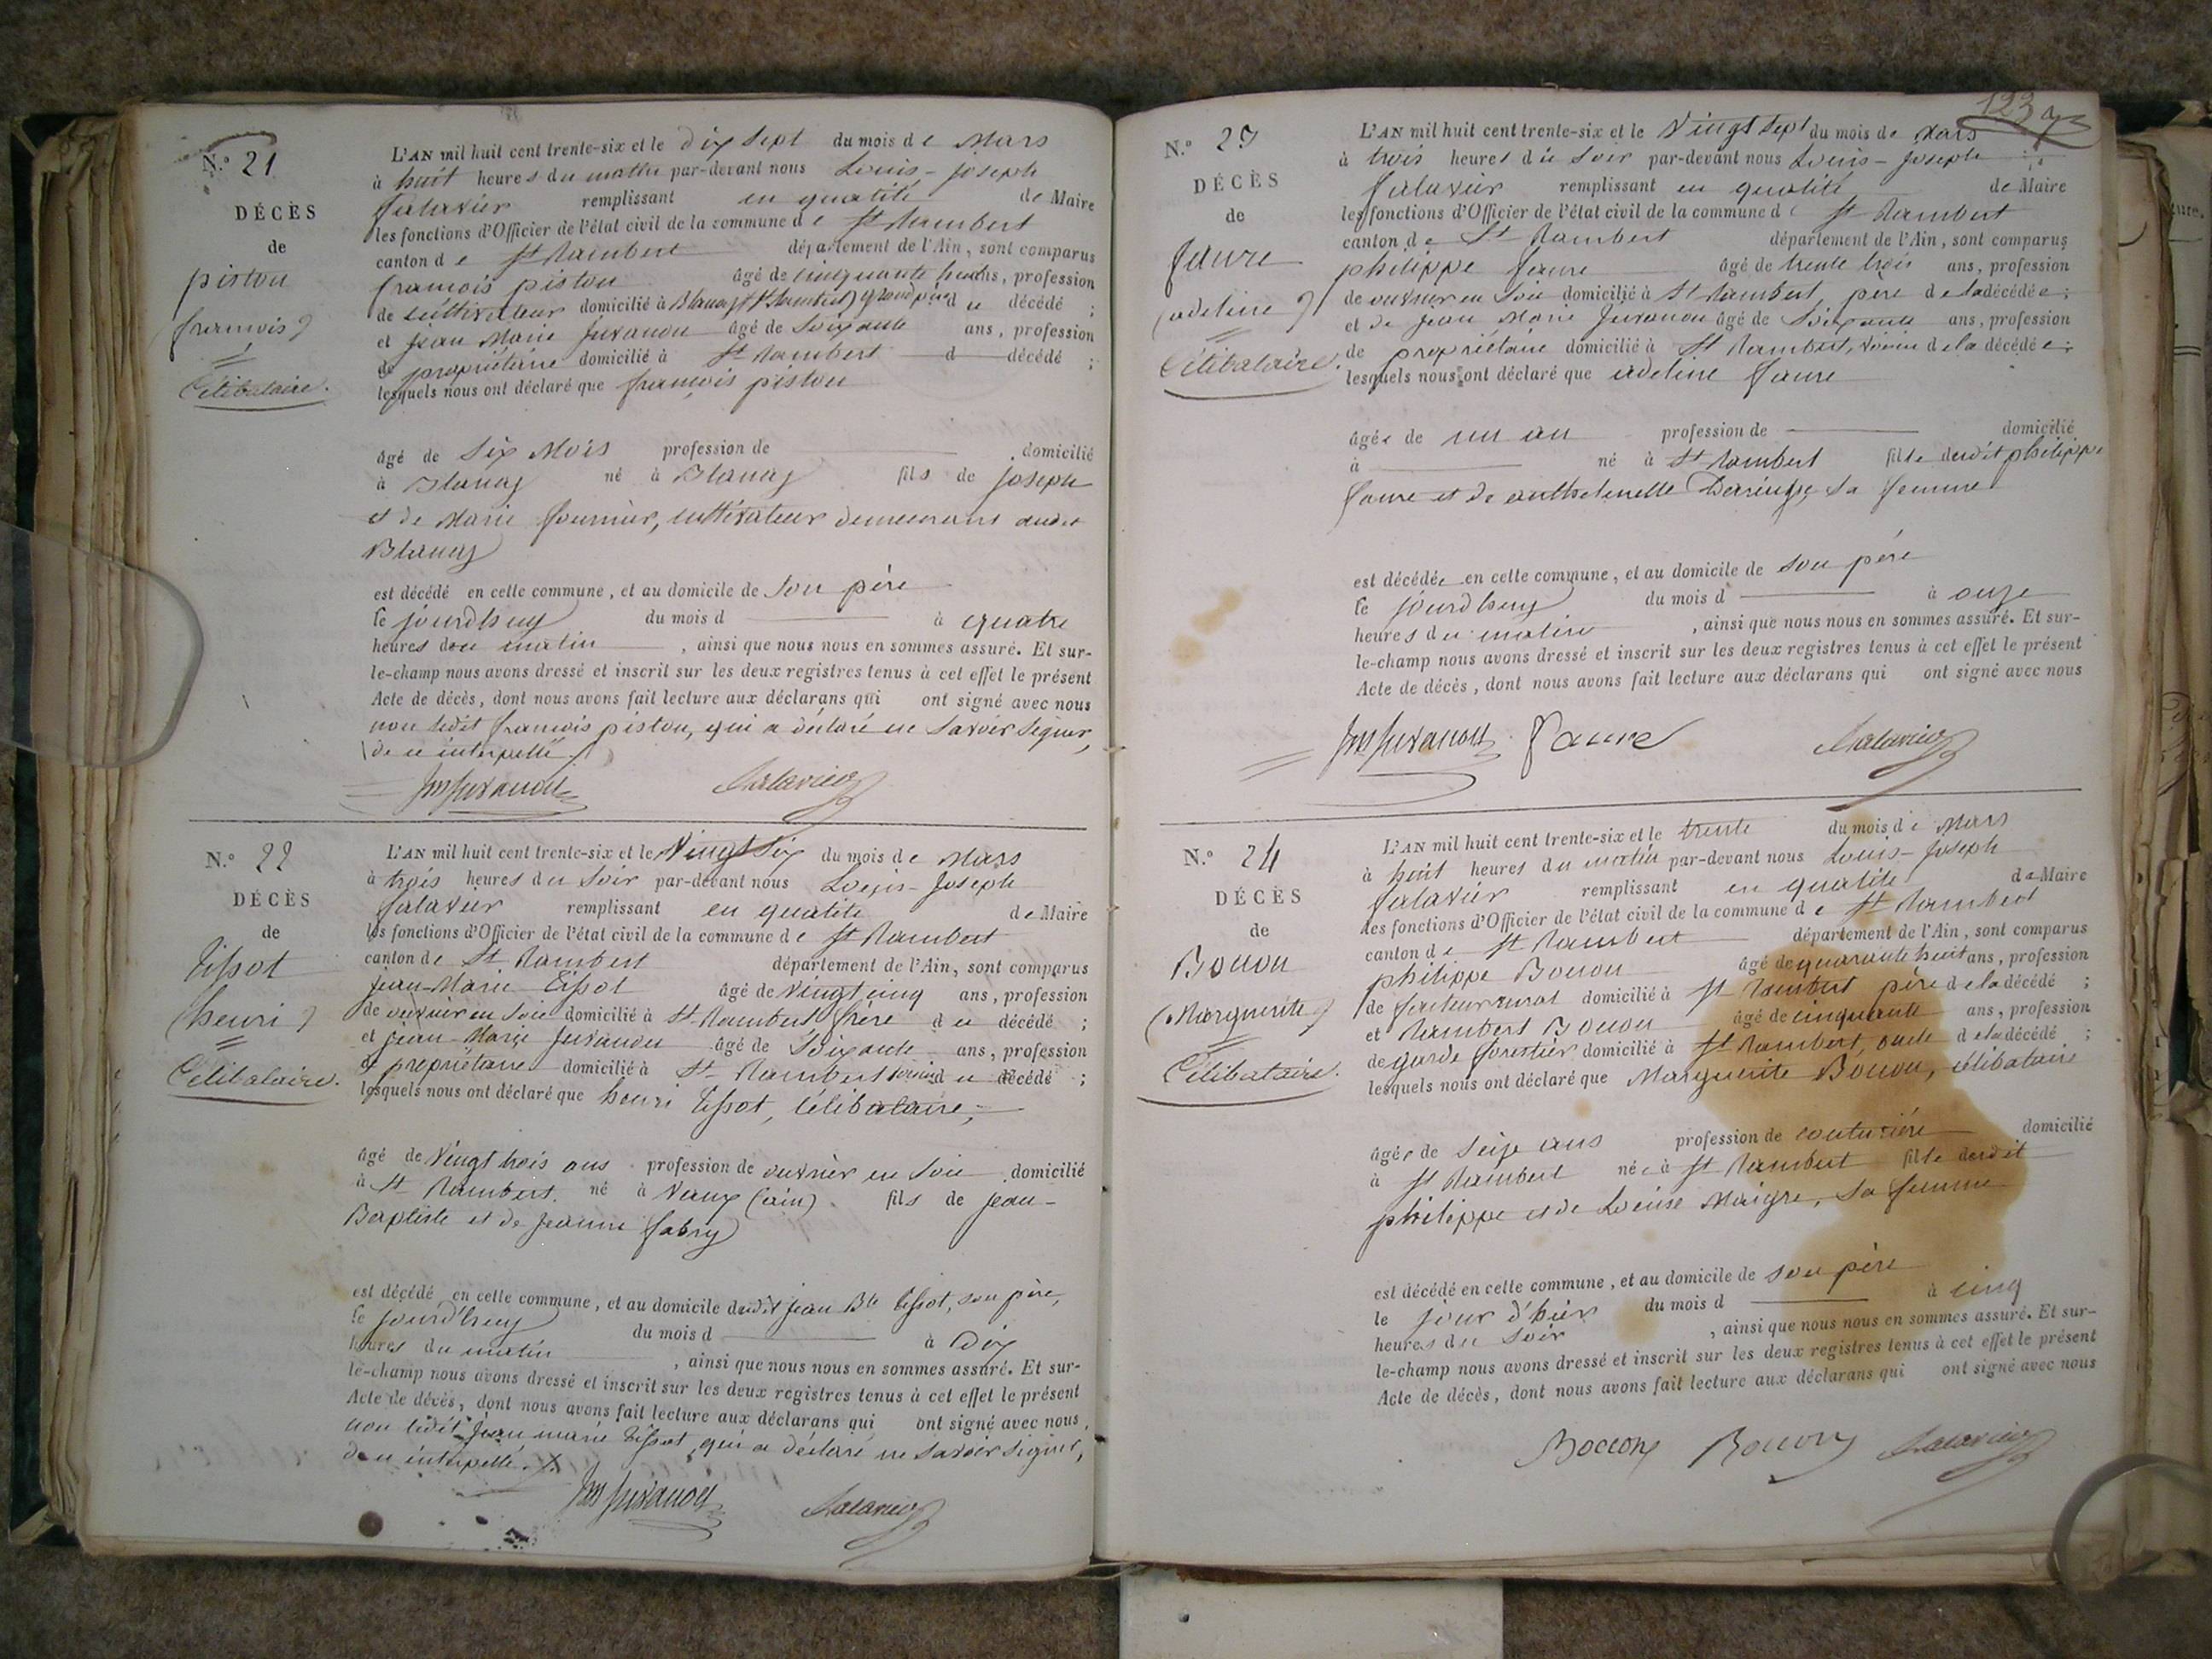 N.º 21
DÉCÈS
de
piston
(françois)
Célibataire.
L'AN mil huit cent trente-six et le dix sept du mois de Mars
à huit heures du matin par-devant nous Louis-joseph
falavier remplissant en qualité de Maire
les fonctions d'Officier de l'état civil de la commune de St Rambert
canton de St Rambert département de l'Ain, sont comparus
françois piston âgé de cinquante huit ans, profession
de cultivateur domicilié à Blanaz (St Rambert) grand père du décédé ;
et jean Marie Juvanon âgé de Soixante ans, profession
de propriétaire domicilié à St Rambert d décédé ;
lesquels nous ont déclaré que françois piston
âgé de Six Mois profession de domicilié
à Blanaz né à Blanaz fils de Joseph
et de Marie fournier, cultivateur demeurans audit
Blanaz
est décédé en cette commune, et au domicile de Son père
le jourdhuy du mois d à quatre
heures du matin , ainsi que nous nous en sommes assuré. Et sur-
le-champ nous avons dressé et inscrit sur les deux registres tenus à cet effet le présent
Acte de décès, dont nous avons fait lecture aux déclarans qui ont signé avec nous
non ledit françois piston, qui a déclaré ne Savoir Signer,
de ce interpellé
JmJuvanon
N.º 22
DÉCÈS
de
Tissot
(henri)
Célibataire.
L'AN mil huit cent trente-six et le Vingt Six du mois de Mars
à trois heures du Soir par-devant nous Louis-Joseph
falavier remplissant en qualité de Maire
les fonctions d'Officier de l'état civil de la commune de St Rambert
canton de St Rambert département de l'Ain, sont comparus
jean-Marie Tissot âgé de Vingt cinq ans, profession
de ouvrier en Soie domicilié à St-Rambert frère du décédé ;
et jean-Marie Juvanon âgé de Soixante ans, profession
de propriétaire domicilié à St Rambert voisin du décédé ;
lesquels nous ont déclaré que henri Tissot, Célibataire,
âgé de Vingt trois ans profession de ouvrier en Soie domicilié
à St Rambert. né à Vaux (ain). fils de jean-
Baptiste et de jeanne fabry
est décédé en cette commune, et au domicile dudit jean Bte Tissot, son père,
le jourd'huy du mois d à Dix
heures du matin , ainsi que nous nous en sommes assuré. Et sur-
le-champ nous avons dressé et inscrit sur les deux registres tenus à cet effet le présent
Acte de décès, dont nous avons fait lecture aux déclarans qui ont signé avec nous,
non ledit jean marie Tissot, qui a déclaré ne Savoir Signer,
de ce interpellé.
Jm Juvanon
123
N.º 23
DÉCÈS
de
faure
(adeline)
Célibataire.
L'AN mil huit cent trente-six et le Vingt Sept du mois de Mars
à trois heures du Soir par-devant nous Louis-Joseph
falavier remplissant en qualité de Maire
les fonctions d'Officier de l'état civil de la commune d St Rambert
canton de St Rambert département de l'Ain, sont comparus
philippe faure âgé de trente trois ans, profession
de ouvrier en Soie domicilié à St Rambert, père de la décédée ;
et de jean Marie Juvanon âgé de Soixante ans, profession
de propriétaire domicilié à St Rambert, voisin de la décédée ;
lesquels nous ont déclaré que adeline faure
âgée de un an profession de domicilié
à né à St Rambert fille dudit philippe
faure et de sa femme
est décédée en cette commune, et au domicile de Son père
le jourdhuy du mois d à onze
heures du matin , ainsi que nous nous en sommes assuré. Et sur-
le-champ nous avons dressé et inscrit sur les deux registres tenus à cet effet le présent
Acte de décès, dont nous avons fait lecture aux déclarans qui ont signé avec nous
JmJuvanon faure
N.º 24
DÉCÈS
de
Bouon
(Marguerite)
Célibataire.
L'AN mil huit cent trente-six et le trente du mois de Mars
à huit heures du matin par-devant nous Louis-Joseph
falavier remplissant en qualité de Maire
les fonctions d'Officier de l'état civil de la commune de St Rambert
canton de St Rambert département de l'Ain, sont comparus
philippe Bouon âgé de quarante huit ans, profession
de facteur rural domicilié à St Rambert père de la décédé ;
et Rambert Bouon âgé de cinquante ans, profession
de garde forestier domicilié à St Rambert, oncle de la décédé ;
lesquels nous ont déclaré que Marguerite Bouon, célibataire
âgée de Seize ans profession de couturière domicilié
à St Rambert née à St Rambert fille dudit
philippe et de Louise Maigre, Sa femme
est décédé en cette commune, et au domicile de Son père
le jour d'hier du mois d à cinq
heures du Soir , ainsi que nous nous en sommes assuré. Et sur-
le-champ nous avons dressé et inscrit sur les deux registres tenus à cet effet le présent
Acte de décès, dont nous avons fait lecture aux déclarans qui ont signé avec nous
Bouon Bouon